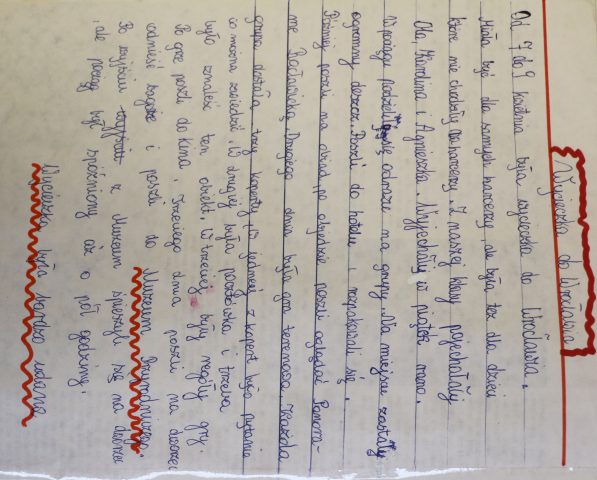 Wycieczka do Wrocławia
Od 7 do 9 kwietnia była wycieczka do Wrocławia.
Miała być dla samych harcerzy, ale była też dla dzieci
które nie chodziły do harcerzy. Z naszej klasy pojechały
Ola, Karolina i Agnieszka. Wyjechały w piątek rano.
W pociągu podzieliły się odrazu na grupy. Na miejscu zastały
ogromny deszcz. Poszli do hotelu i rozpakowali się.
Później poszli na obiad, po obiedzie poszli oglądać Panora-
mę Racławicką. Drugiego dnia była gra terenowa. Każda
grupa dostała trzy koperty, w jednej z kopert było pytanie
co można zwiedzić. W drugiej była pocztówka i trzeba
było znaleść ten obiekt. W trzeciej były reguły gry.
Po grze poszli do kina. Trzeciego dnia poszli na dworzec
odnieść bagaże i poszli do Muzeum Przyrodniczego.
Po wyjściu z Muzeum śpieszyli się na dworzec
, ale pociąg był spóźniony aż o pół godziny.
Wycieczka była bardzo udana